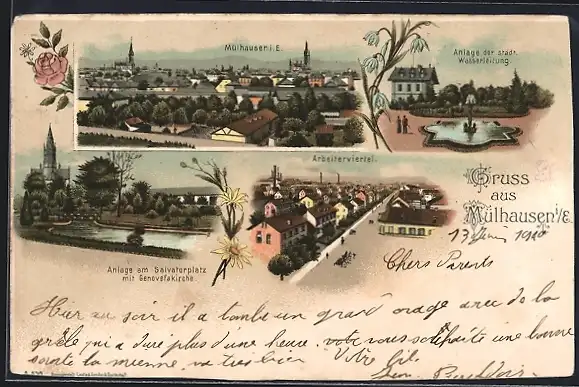 Mülhausen i. E.
Anlage der städt.
Wasserleitung.
Arbeiterviertel.
Gruss
aus
Mülhausen i/E.
Anlage am Salvatorplatz
mit Genovefakirche.
13 Juin 1900
Chers Parents
Hier au soir il a tombe un grand orage avec de la
grêle qui a dure plus d'une heure. votre vous souhaite une bonne
sante la mienne va tres bien Votre fils